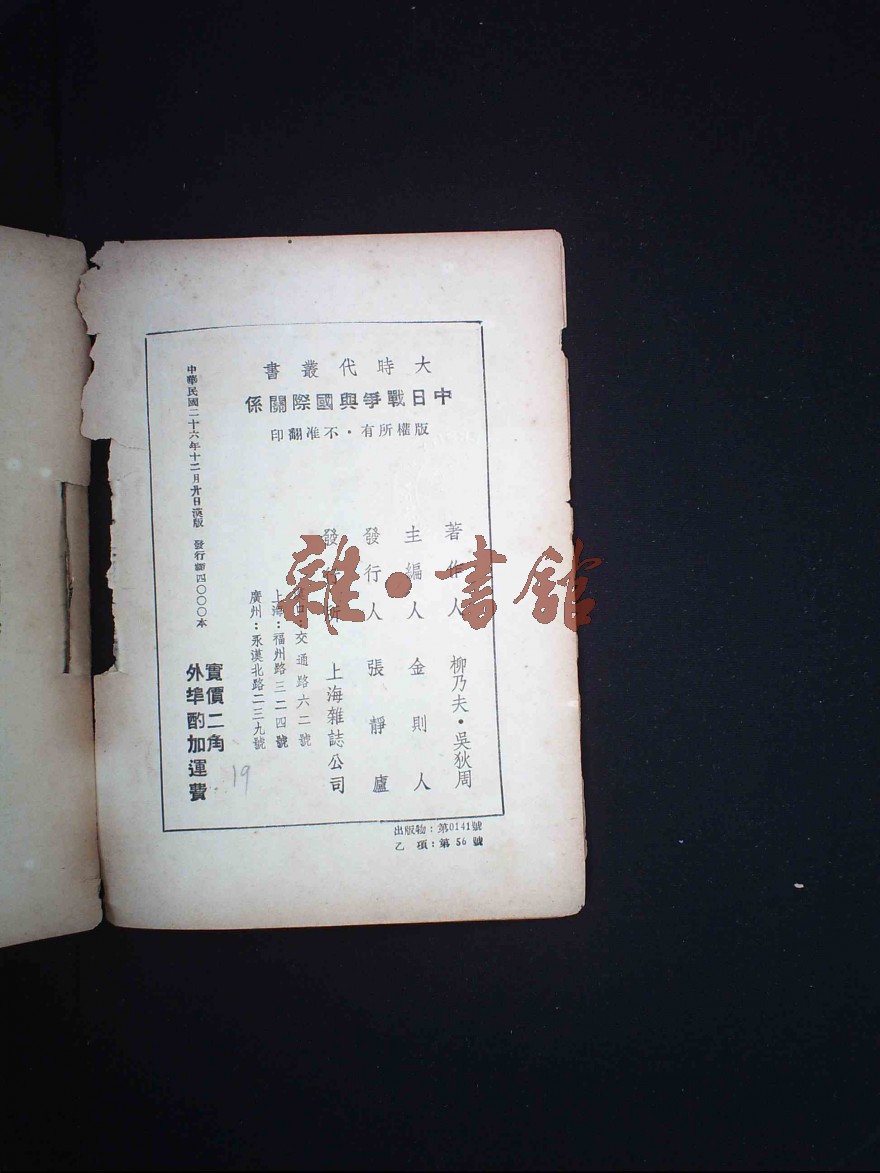 大時代叢書
中日戰爭與國際關係
版權所有·不准翻印
著作人 柳乃夫·吳狄周
主編人 金則人
發行人 張靜廬
發行所 上海雜誌公司
漢口:交通路六二號
上海:福州路三二四號
廣州:永漢北路二三九號
實價二角
外埠酌加運費
中華民國二十六年十二月廿日漢版 發行 四〇〇〇本
出版物:第0141號
乙 項:第 56 號
19
雜·書館